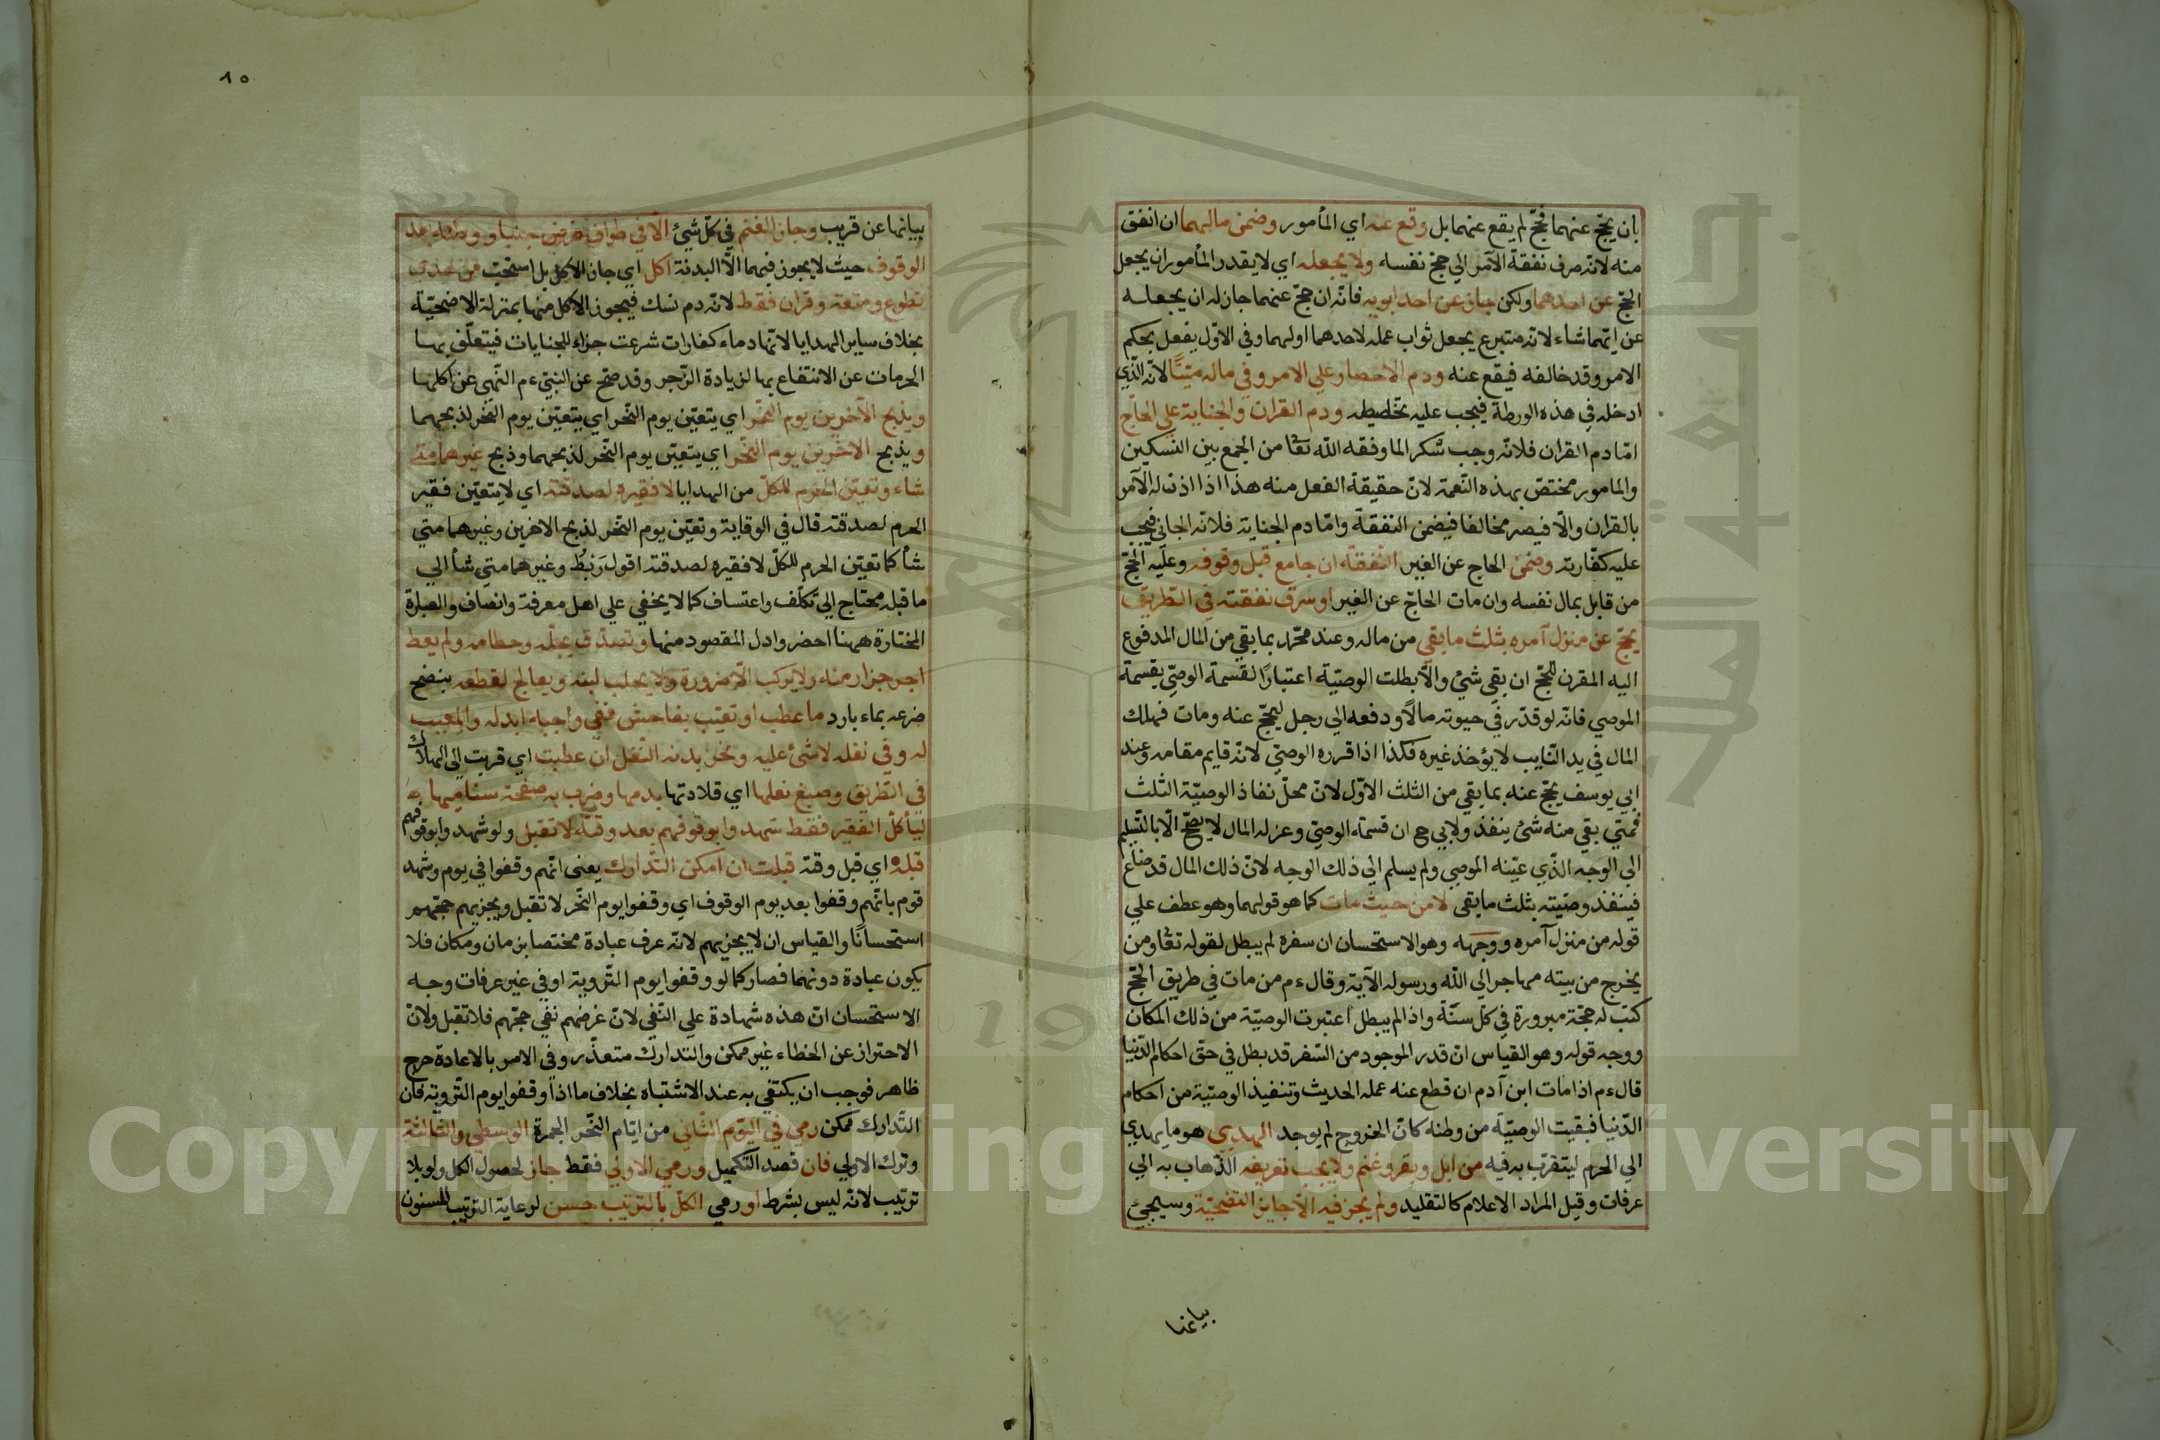 بان يحجّ عنهما فحجّ لم يقع عنهما بل وقع عنه اي المأمور وضمن مالهما ان انفق
منه لانّه صرف نفقة الآمر الي حجّ نفسه ولا يجعله اي لا يقدر المأمور ان يجعل
الحجّ عن احدهما ولكن جاز عن احد ابويه فانّه ان حجّ عنهما جاز له ان يجعله
عن ايّهما شاء لانّه متبرع يجعل ثواب عمله لاحدهما اولهما وفي الاوّل يفعل بحكم
الامر وقد خالفه فيقع عنه ودم الاحصار علي الامر وفي ماله ميّتًا لانّه الّذي
ادخله في هذه الورطة فيجب عليه تخليصه ودم القران والجناية علي الحاجّ
امّا دم القران فلانّه وجب شكر الما وفقه اللّه تعا من الجمع بين النسكين
والمامور مختصّ بهذه النّعمة لانّ حقيقة الفعل منه هذا اذا اذن له الآمر
بالقران والّا فيصير مخالفا فيضمن النفقة وامّا دم الجناية فلانّه الجاني فيجب
عليه كفّارته وضمن الحاج عن الغير النّفقة ان جامع قبل وقوفه وعليه الحجّ
من قابل بمال نفسه وان مات الحاجّ عن الغير او سرق نفقته في الطّريق
يحجّ عن منزل آمره بثلث ما بقي من ماله وعند محمّد بما بقي من المال المدفوع
اليه المقرن للحجّ ان بقي شئ والّا بطلت الوصيّة اعتبارًا لقسمة الوصيّ بقسمة
الموصي فانّه لو قدّر في حيوته مالًا ودفعه الي رجل ليحجّ عنه ومات فهلك
المال في يد النّايب لا يؤخذ غيره فكذا اذا قرره الوصيّ لانّه قايم مقامه وعند
ابي يوسف يحجّ عنه بما بقي من الثلث الاوّل لانّ محلّ نفاذ الوصيّة الثّلث
فمتي بقي منه شئ ينفذ ولابي حج ان قسمة الوصيّ وعزله المال لا يصحّ الّا بالتّسليم
الي الوجه الذّي عيّنه الموصي ولم يسلم الي ذلك الوجه لانّ ذلك المال قد ضاع
فينفذ وصيّته بثلث ما بقي لا من حيث مات كما هو قولهما وهو عطف علي
قوله من منزل آمره ووجهه وهو الاستحسان ان سفره لم يبطل لقوله تعا ومن
يخرج من بيته مهاجرا الي اللّه ورسوله الآية وقال ءم من مات في طريق الحجّ
كتب له حجّة مبرورة في كلّ سنّة واذا لم يبطل اعتبرت الوصيّة من ذلك المكان
ووجه قوله وهو القياس انّ قدر الموجود من السّفر قد بطل في حقّ احكام الدّنيا
قال ءم اذا مات ابن آدم ان قطع عنه عمله الحديث وتنفيذ الوصيّة من احكام
الدّنيا فبقيت الوصيّة من وطنه كانّ الخروج لم يوجد الهدي هو ما يهدي
الي الحرم ليتقرّب به فيه من ابل وبقر وغنم ولا يجب تعريفه الذّهاب به الي
عرفات وقيل المراد الاعلام كالتقليد ولم يجز فيه الّا جايز التضحيّة وسيجئ
بيانها
٨٥
بيانها عن قريب وجاز الغنم في كلّ شئ الّا في طواف فرض جنبا ووطئه بعد
الوقوف حيث لا يجوز فيهما الّا البدنة اكل اي جاز الاكل بل استحبّ من هدي
تطوع ومتعة وقران فقط لانّه دم نسك فيجوز الاكل منها بمنزلة الاضحيّة
بخلاف ساير الهدايا لانّها دماء كفارات شرعت جزاء للجنايات فيتعلّق بها
الحرمان عن الانتفاع بها لزيادة الزّجر وقد صحّ عن النبيّ ءم النّهي عن اكلها
ويذبح الآخرين يوم النّحر اي يتعيّن يوم النّحر اي يتعيّن يوم النّحر لذبحهما
ويذبح الاخرين يوم النّحر اي يتعيّن يوم النّحر لذبحهما وذبح غيرهما متي
شاء وتعيّن الحرم للكلّ من الهدايا لا فقيره لصدقته اي لا يتعيّن فقير
الحرم لصدقته قال في الوقاية وتعيّن يوم النّحر لذبح الاخرين وغيرهما متي
شأ كما تعيّن الحرم للكلّ لا فقيره لصدقته اقول رَبْطُ وغيرهما متي شأ الي
ما قبله محتاج الي تكلّف واعتساف كما لا يخفي علي اهل معرفة وانصاف والعبارة
المختارة ههنا احضر وادل المقصود منها وتصدّق بجلّه وحطامه ولم يعط
اجر جزار منه ولا يركب الّا ضرورة ولا يحلب لبنه ويعالج لقطعه بنضح
ضرعه بماء بارد ما عطب او تعيّب بفاحش ففي واجبة ابدله والمعيب
له وفي نفله لا شئ عليه ونحر بدنه النّفل ان عطبت اي قربت الي الهلاك
في الطّريق وصبغ نعلها اي قلادتها بدمها وضرب به صفحة سنامها
ليأكل الفقير فقط شهدوا بوقوفهم بعد وقته لا تقبل ولو شهدوا بوقوفهم
قبله اي قبل وقته قبلت ان امكن التّدارك يعني انّهم وقفوا في يوم وشهد
قوم بانّهم وقفوا بعد يوم الوقوف اي وقفوا يوم النّحر لا تقبل ويجزيهم حجّهم
استحسانًا والقياس ان لا يجزيهم لانّه عرف عبادة مختصا بزمان ومكان فلا
يكون عبادة دونهما فصار كما لو وقفوا يوم التّروية او في غير عرفات وجه
الاستحسان انّ هذه شهادة علي النّفي لانّ غرضهم نفي حجّهم فلا تقبل ولانّ
الاحتراز عن الخطاء غير ممكن والتدارك متعذّر وفي الامر بالاعادة حرج
ظاهر فوجب ان يكتفي به عند الاشتباه بخلاف ما اذا وقفوا يوم التّروية فانّ
التّدارك ممكن رمي في اليوم الثّاني من ايّام النّحر الجمرة الوسطي والثالثة
وترك الاولي فان قصد التّكميل ورمي الاولي فقط جاز لحصول الكل ولو بلا
ترتيب لانّه ليس بشرط او رمي الكلّ بالترتيب حسن لرعاية التّرتيب المسنون
Copyright © King Saud University